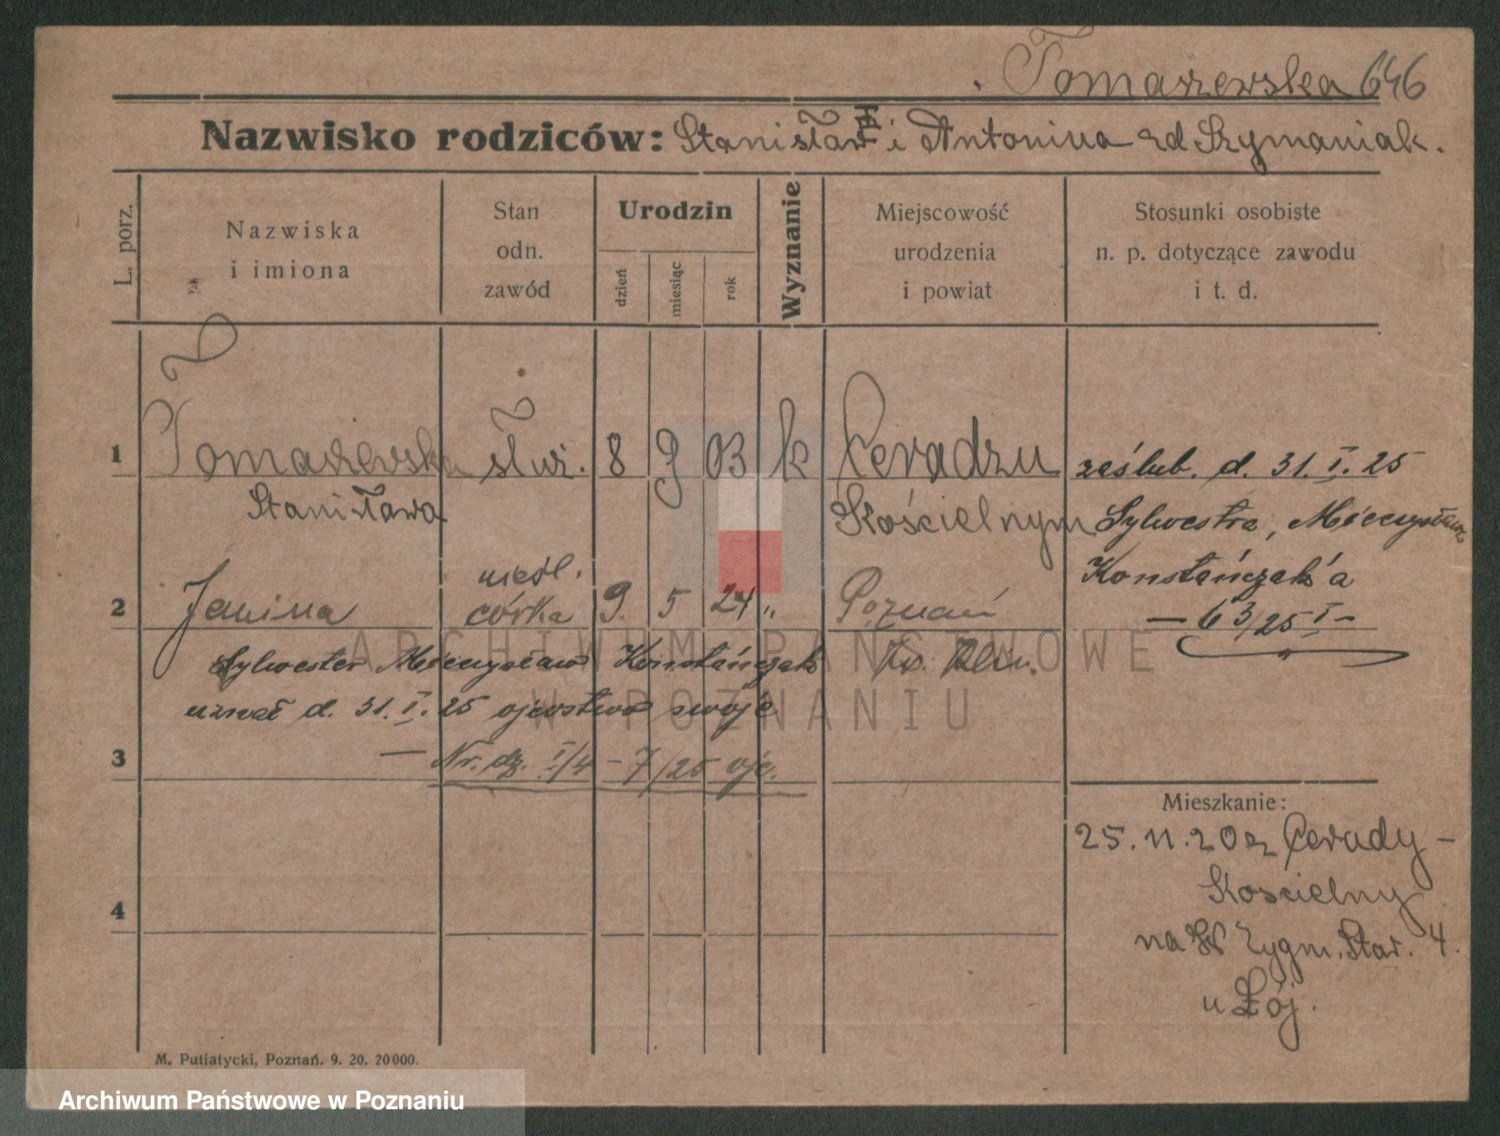 Tomaszewska 646
Nazwisko rodziców: Stanisław i Antonina zd Szymaniak.
L. porz.
Nazwiska
i imiona
Stan
odn.
zawód
Urodzin
dzień
miesiąc
rok
Wyznanie
Miejscowość
urodzenia
i powiat
Stosunki osobiste
n. p. dotyczące zawodu
i t. d.
1 Tomaszewska służ. 8 9 03 k Ceradzu zaślub. d. 31. I. 25
Stanisława Kościelnym Sylwestra, Mieczysława
nieśl. Konstańczak'a
2 Janina córka 9. 5 24 „ Poznań — 63/25 I —
Sylwester Mieczysław Konstańczak
uznał d. 31. I. 25 ojcostwo swoje
3 — Nr. dz. I/4 — 7/25 ojc.
Mieszkanie:
25. 11. 20 z Cerady-
Kościelny
4
na W Zygm. Star. 4.
u Łój.
M. Putiatycki, Poznań. 9. 20. 20000.
ARCHIWUM PAŃSTWOWE
W POZNANIU
Archiwum Państwowe w Poznaniu